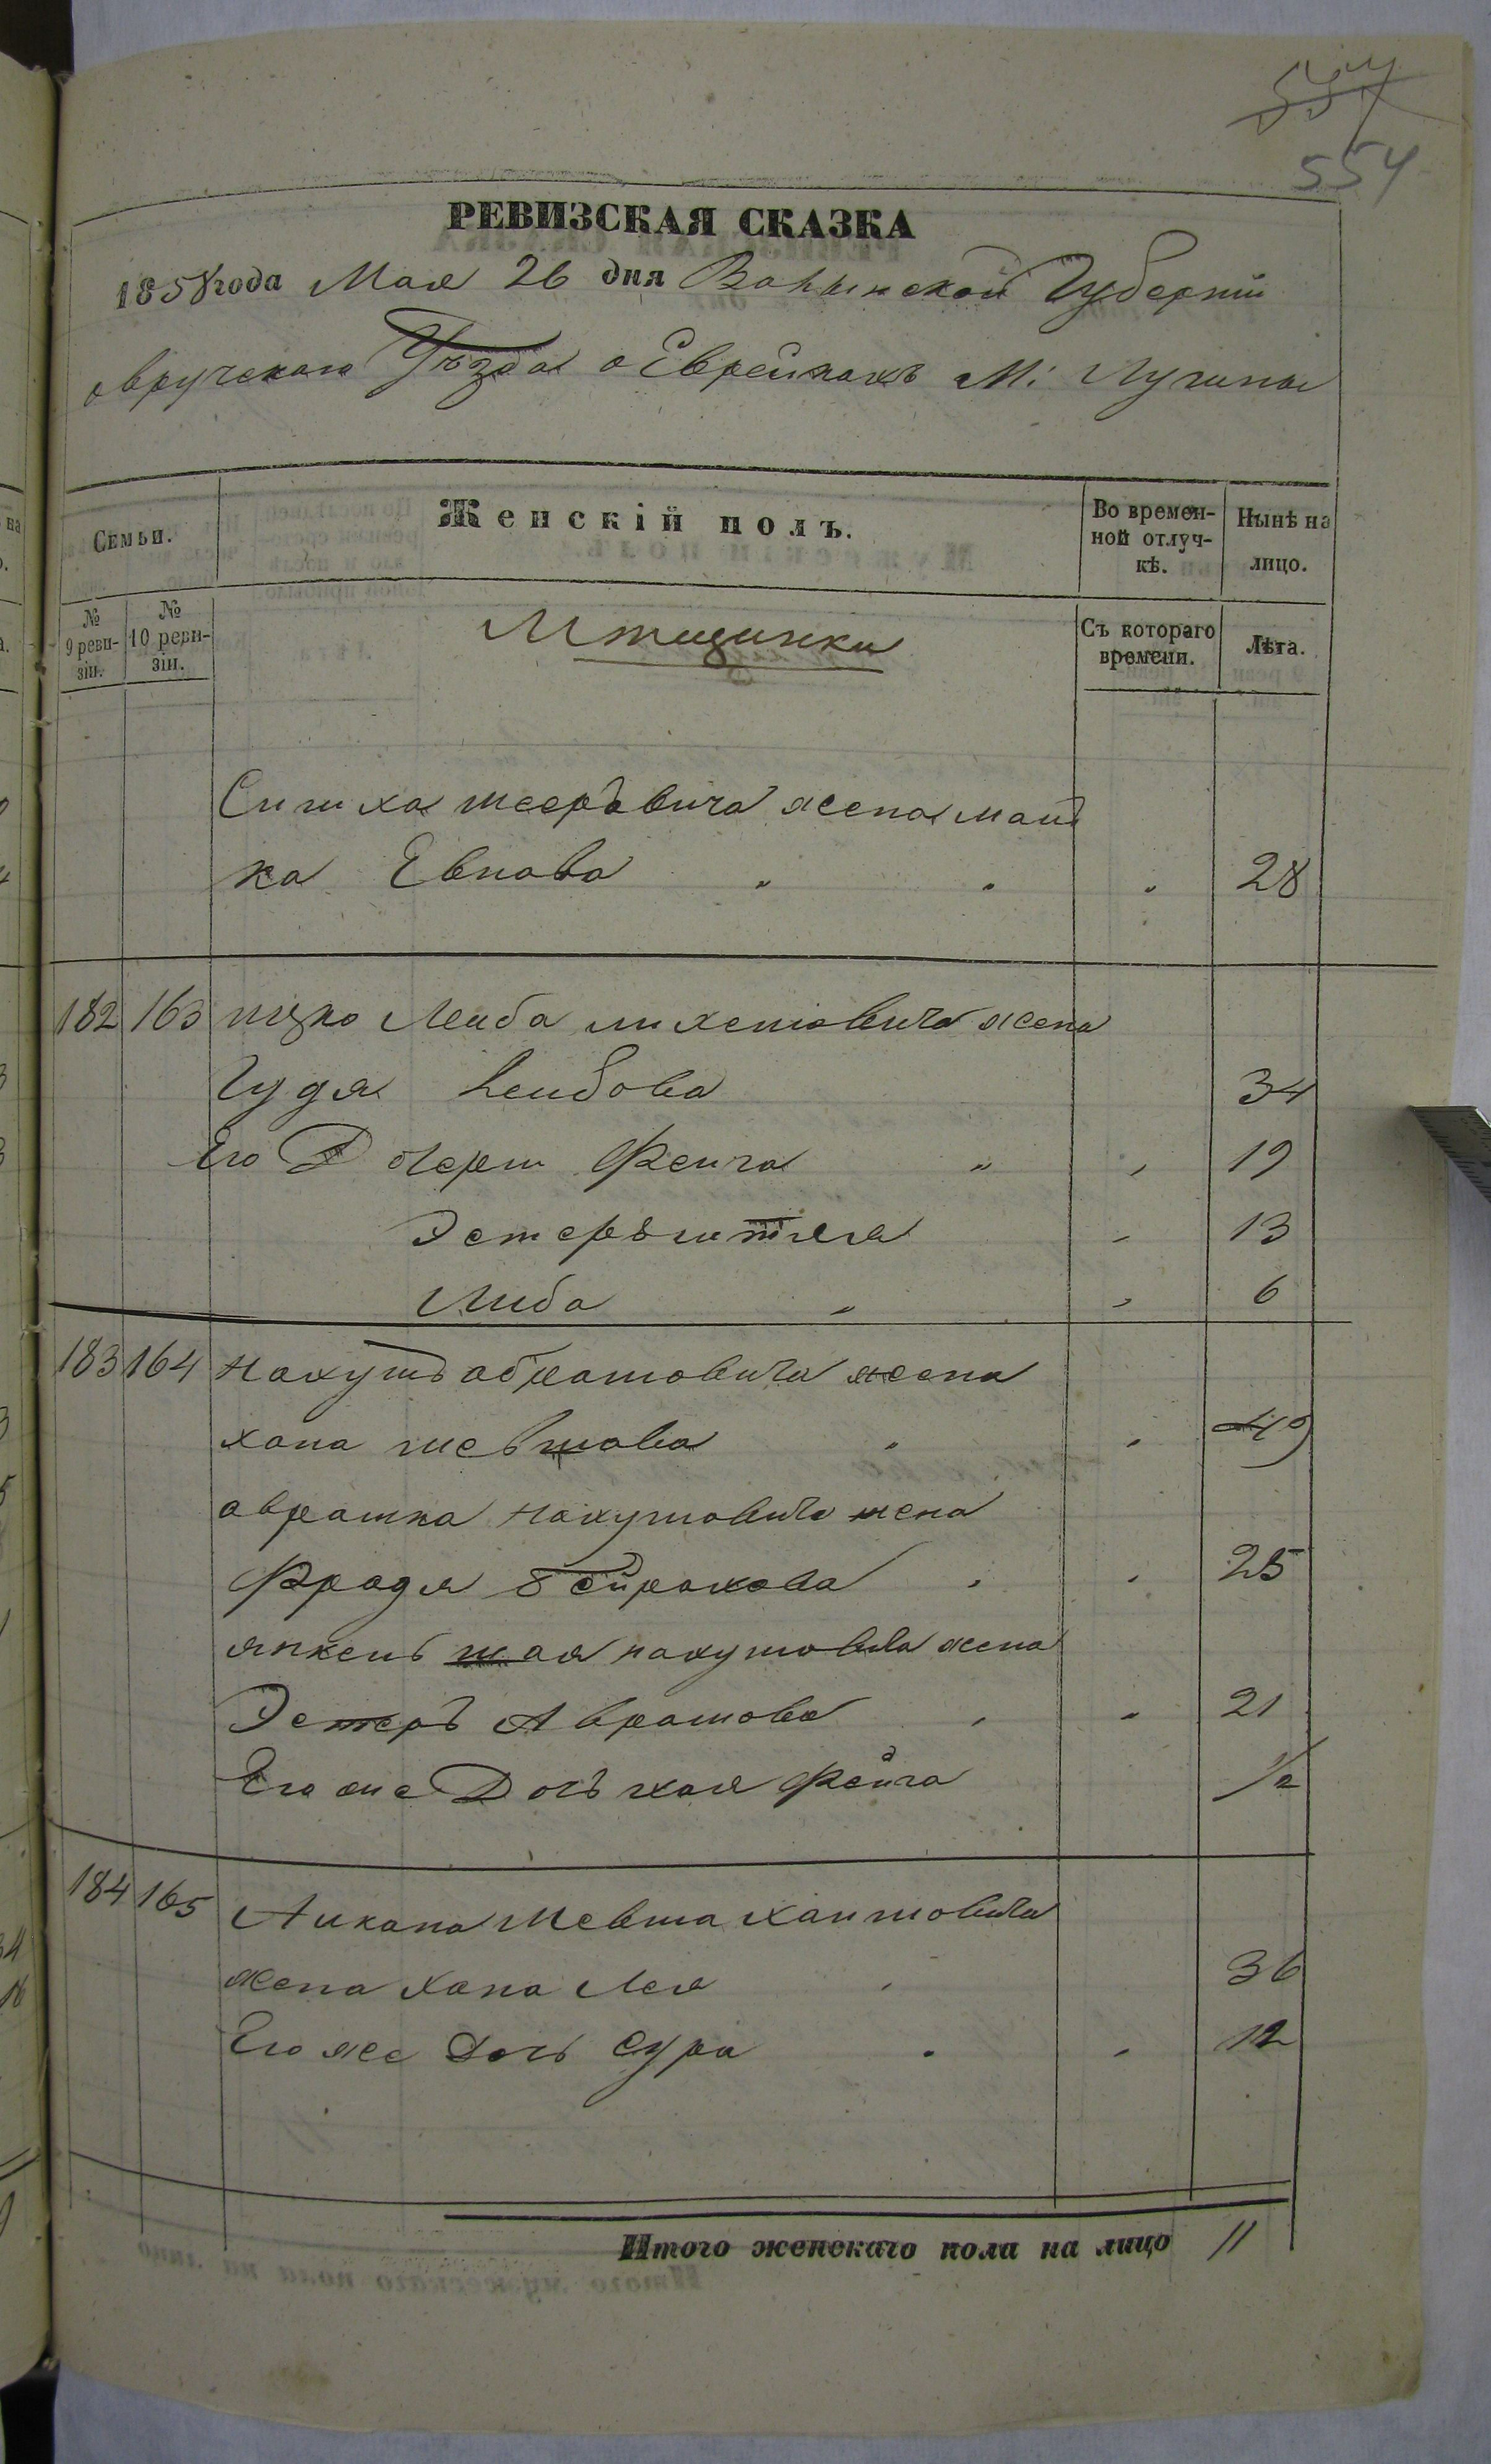 554
РЕВИЗСКАЯ СКАЗКА
1858 года Мая 26 дня Волынской Губерніи
овручскаго Уѣзда о Еврейкахъ М: Лугины
Семьи.
Женскій полъ.
Во времен-
ной отлуч-
кѣ.
Нынѣ на
лицо.
№
9 реви-
зіи.
№
10 реви-
зіи.
Мѣщанки
Съ котораго
времени.
Лѣта.
Симха жена
ка 28
182 163 ицко Леиба жена
Гудя Леибова 34
Его Дочери Феига 19
Эстеръ 13
Либа 6
183 164 нахумъ абрамовича жена
хана 49
аврамка нахумовича жена
Фрадя 25
янкель нахумовича жена
Эстеръ Аврамова 21
Его же Дочь хая Фейга 1/2
184 165 Хаимовича
жена хана Лея 36
Его же Дочь Сура 12
Итого женскаго пола на лицо 11